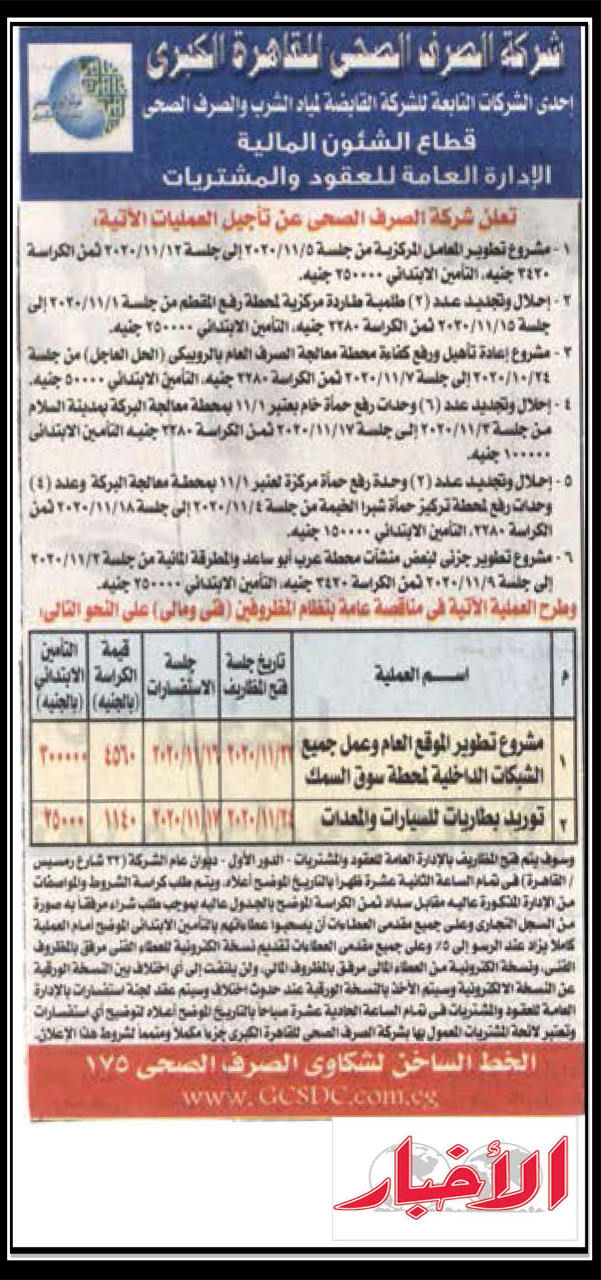 شركة الصرف الصحى للقاهرة الكبرى
إحدى الشركات التابعة للشركة القابضة لمياه الشرب والصرف الصحى
قطاع الشئون المالية
الإدارة العامة للعقود والمشتريات
تعلن شركة الصرف الصحى عن تأجيل العمليات الآتية:
١- مشروع تطوير المعامل المركزية من جلسة ٢٠٢٠/١١/٥ إلى جلسة ٢٠٢٠/١١/١٢ ثمن الكراسة
٣٤٢٠ جنيه، التأمين الابتدائى ٢٥٠٠٠٠ جنيه.
٢- إحلال وتجديد عدد (٢) طلمبة طاردة مركزية لمحطة رفع المقطم من جلسة ٢٠٢٠/١١/١ إلى
جلسة ٢٠٢٠/١١/١٥ ثمن الكراسة ٢٢٨٠ جنيه، التأمين الابتدائى ٢٥٠٠٠٠ جنيه.
٣- مشروع إعادة تأهيل ورفع كفاءة محطة معالجة الصرف العام بالروبيكى (الحل العاجل) من جلسة
٢٠٢٠/١٠/٢٤ إلى جلسة ٢٠٢٠/١١/٧ ثمن الكراسة ٢٢٨٠ جنيه، التأمين الابتدائى ٥٠٠٠٠ جنيه.
٤- إحلال وتجديد عدد (٦) وحدات رفع حمأة خام بعنبر ١١/١ بمحطة معالجة البركة بمدينة السلام
من جلسة ٢٠٢٠/١١/٣ إلى جلسة ٢٠٢٠/١١/١٧ ثمن الكراسة ٢٢٨٠ جنيه التأمين الابتدائى
١٠٠٠٠٠ جنيه.
٥- إحلال وتجديد عدد (٢) وحدة رفع حمأة مركزة لعنبر ١١/١ بمحطة معالجة البركة وعدد (٤)
وحدات رفع لمحطة تركيز حمأة شبرا الخيمة من جلسة ٢٠٢٠/١١/٤ إلى جلسة ٢٠٢٠/١١/١٨ ثمن
الكراسة ٢٢٨٠، التأمين الابتدائى ١٥٠٠٠٠ جنيه.
٦- مشروع تطوير جزئى لبعض منشآت محطة عرب أبو ساعد والمطرقة المائية من جلسة ٢٠٢٠/١١/٢
إلى جلسة ٢٠٢٠/١١/٩ ثمن الكراسة ٣٤٢٠ جنيه، التأمين الابتدائى ٢٥٠٠٠٠ جنيه.
وطرح العملية الآتية فى مناقصة عامة بنظام المظروفين (فنى ومالى) على النحو التالى:
م | اسم العملية | تاريخ جلسة فتح المظاريف | جلسة الاستفسارات | قيمة الكراسة (بالجنيه) | التأمين الابتدائى (بالجنيه)
١ | مشروع تطوير الموقع العام وعمل جميع الشبكات الداخلية لمحطة سوق السمك | ٢٠٢٠/١١/٢٣ | ٢٠٢٠/١١/١٦ | ٤٥٦٠ | ٣٠٠٠٠٠
٢ | توريد بطاريات للسيارات والمعدات | ٢٠٢٠/١١/٢٤ | ٢٠٢٠/١١/١٧ | ١١٤٠ | ٢٥٠٠٠
وسوف يتم فتح المظاريف بالإدارة العامة للعقود والمشتريات - الدور الأول - ديوان عام الشركة (٢٢ شارع رمسيس
/ القاهرة) فى تمام الساعة الثانية عشرة ظهراً بالتاريخ الموضح أعلاه، ويتم طلب كراسة الشروط والمواصفات
من الإدارة المذكورة عاليه مقابل سداد ثمن الكراسة الموضح بالجدول عاليه بموجب طلب شراء مرفقاً به صورة
من السجل التجارى وعلى جميع مقدمى العطاءات أن يصحبوا عطاءاتهم بالتأمين الابتدائى الموضح أمام العملية
كاملاً يزاد عند الرسو إلى ٥٪ وعلى جميع مقدمى العطاءات تقديم نسخة الكترونية للعطاء الفنى مرفق بالمظروف
الفنى، ونسخة الكترونية من العطاء المالى مرفق بالمظروف المالى، ولن يلتفت إلى أى اختلاف بين النسخة الورقية
عن النسخة الالكترونية وسيتم الأخذ بالنسخة الورقية عند حدوث اختلاف وسيتم عقد لجنة استفسارات بالإدارة
العامة للعقود والمشتريات فى تمام الساعة الحادية عشرة صباحاً بالتاريخ الموضح أعلاه لتوضيح أى استفسارات
وتعتبر لائحة المشتريات المعمول بها بشركة الصرف الصحى للقاهرة الكبرى جزءا مكملا ومتمما لشروط هذا الإعلان.
الخط الساخن لشكاوى الصرف الصحى ١٧٥
www.GCSDC.com.eg
الأخبار